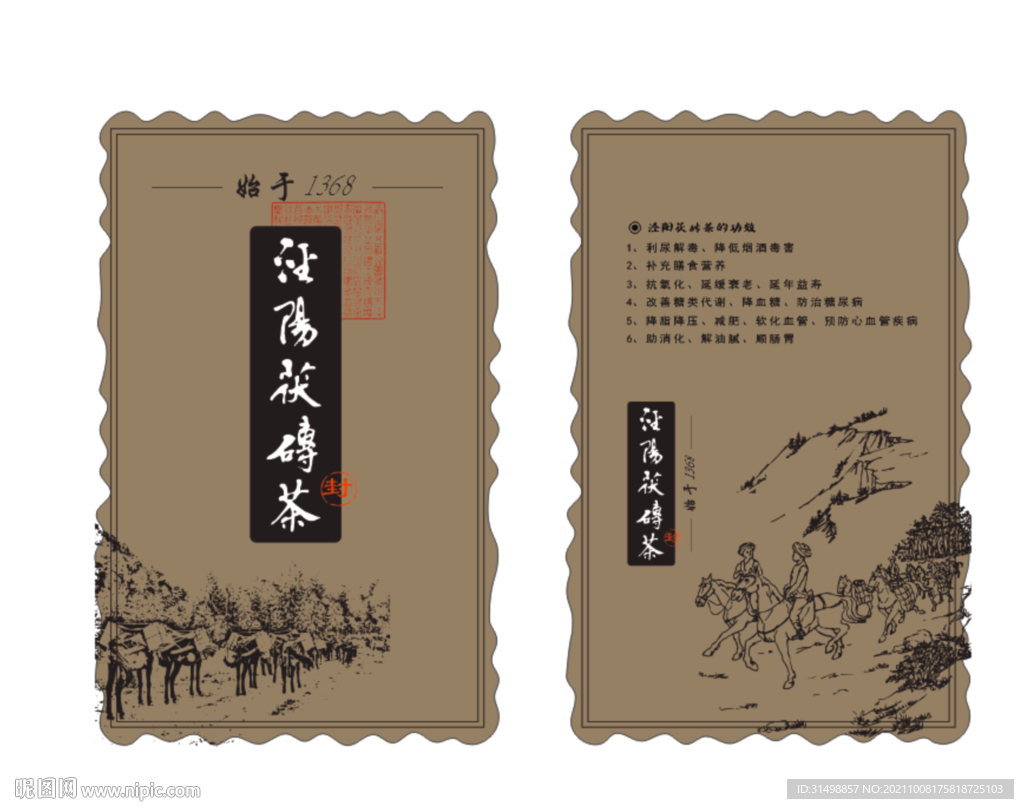 始于1368
泾陽茯磚茶
封
泾阳茯砖茶的功效
1、利尿解毒、降低烟酒毒害
2、补充膳食营养
3、抗氧化、延缓衰老、延年益寿
4、改善糖类代谢、降血糖、防治糖尿病
5、降脂降压、减肥、软化血管、预防心血管疾病
6、助消化、解油腻、顺肠胃
泾陽茯磚茶
封
始于1368
昵图网 www.nipic.com
ID:31498857 NO:20211008175818725103